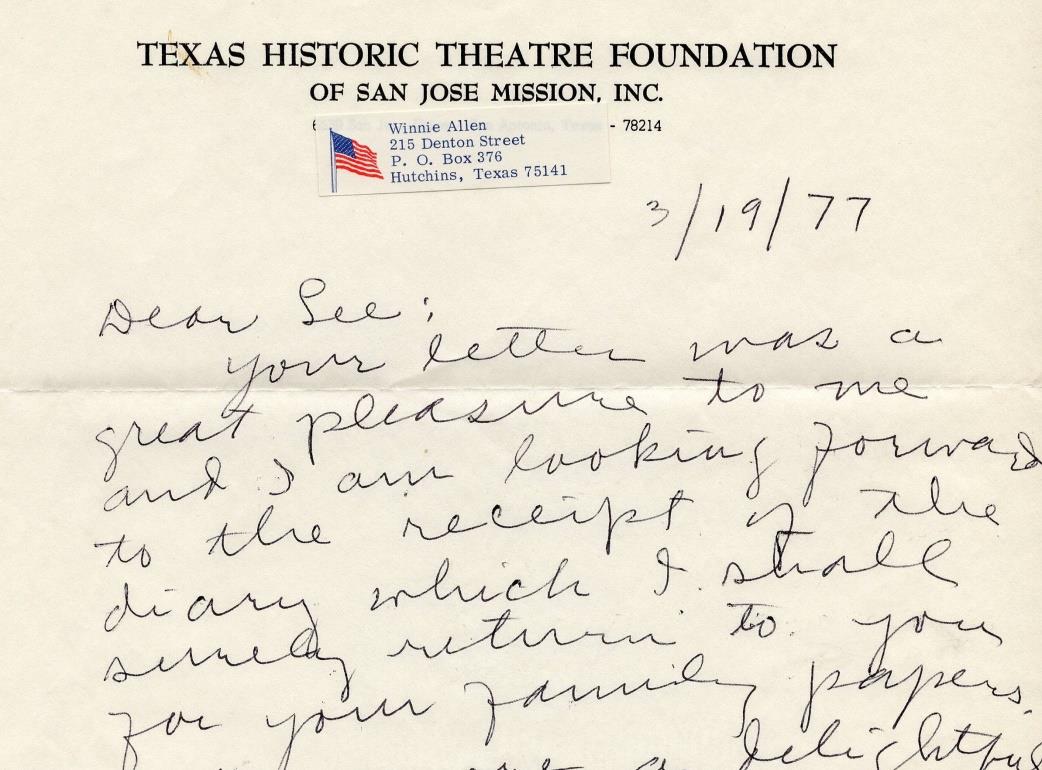 TEXAS HISTORIC THEATRE FOUNDATION
OF SAN JOSE MISSION, INC.
- 78214
Winnie Allen
215 Denton Street
P. O. Box 376
Hutchins, Texas 75141
3/19/77
Dear See:
your letter was a
great pleasure to me
and I am looking forward
to the receipt of the
diary which I shall
surely return to you
for your family papers.
a delightful